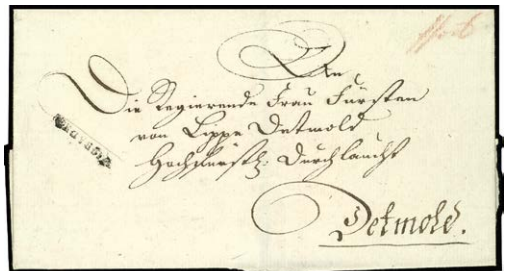 An
Die Regierende Frau Fürsten
von Lippe Detmold
Hochfürstl: Durchlaucht
Detmold.